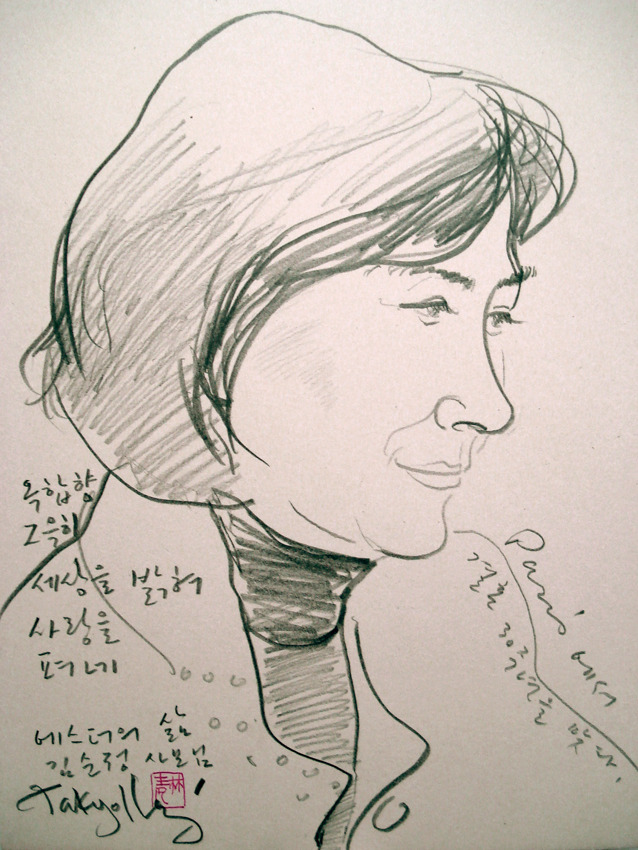 옥합향
그윽히
세상을 밝혀
사랑을
펴네
에스더의 삶
김순정 사모님
Paris에서
결혼 30주년을 맞다.